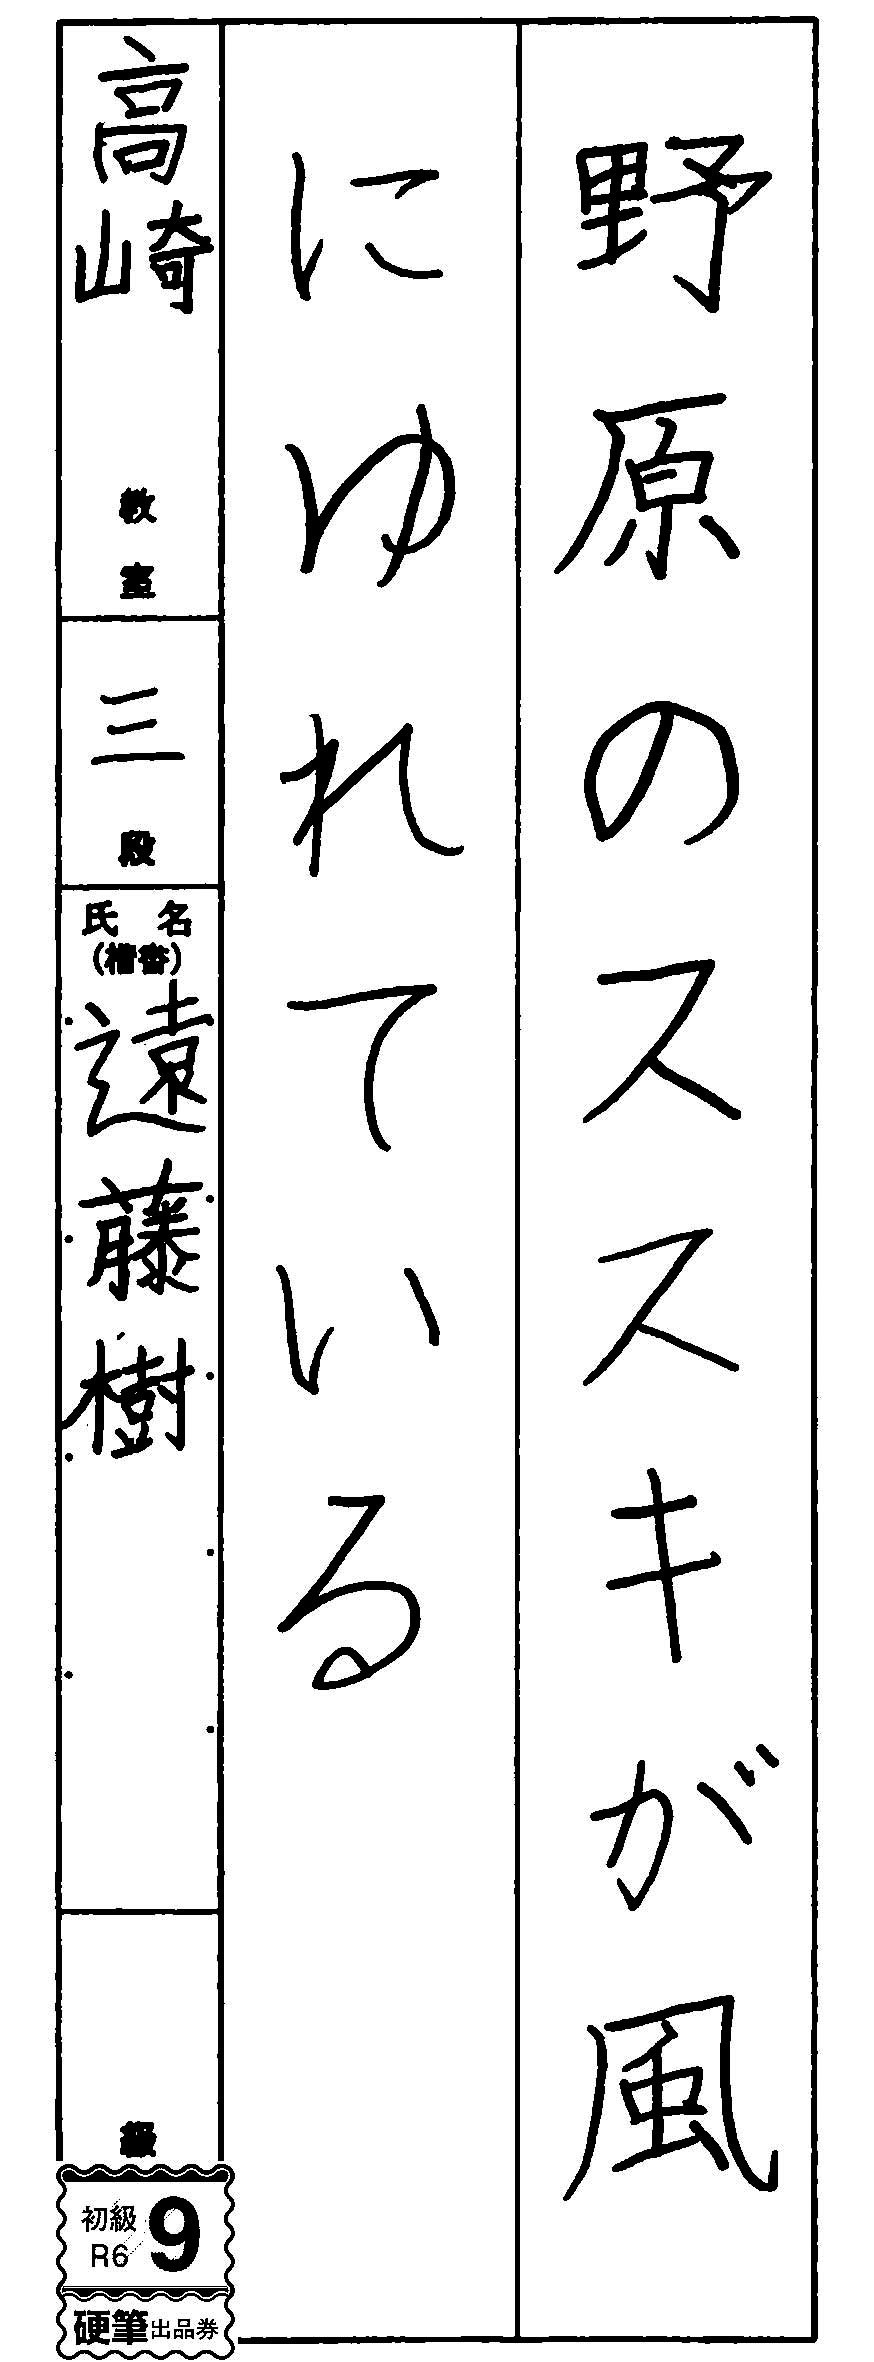 野原のススキが風
にゆれている
高崎
教室
三
段
氏名
(楷書)
遠藤樹
級
初級
R6
9
硬筆出品券